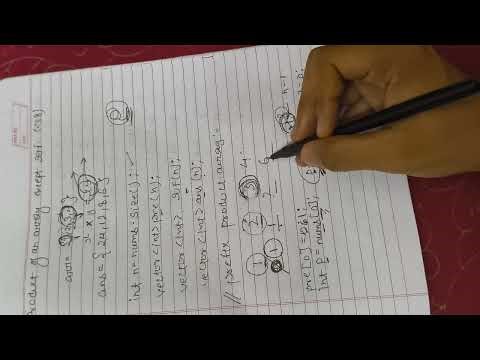 Product of an array except self (238)
arr = {1,2,3,4}
ans = {24,12,8,6}
int n = nums.size();
vector<int> pre(n);
vector<int> suf(n);
vector<int> ans(n);
// prefix product array:-
1 2 3 4
1 1 2 6
pre[0]=
int p = nums[0];
n-1